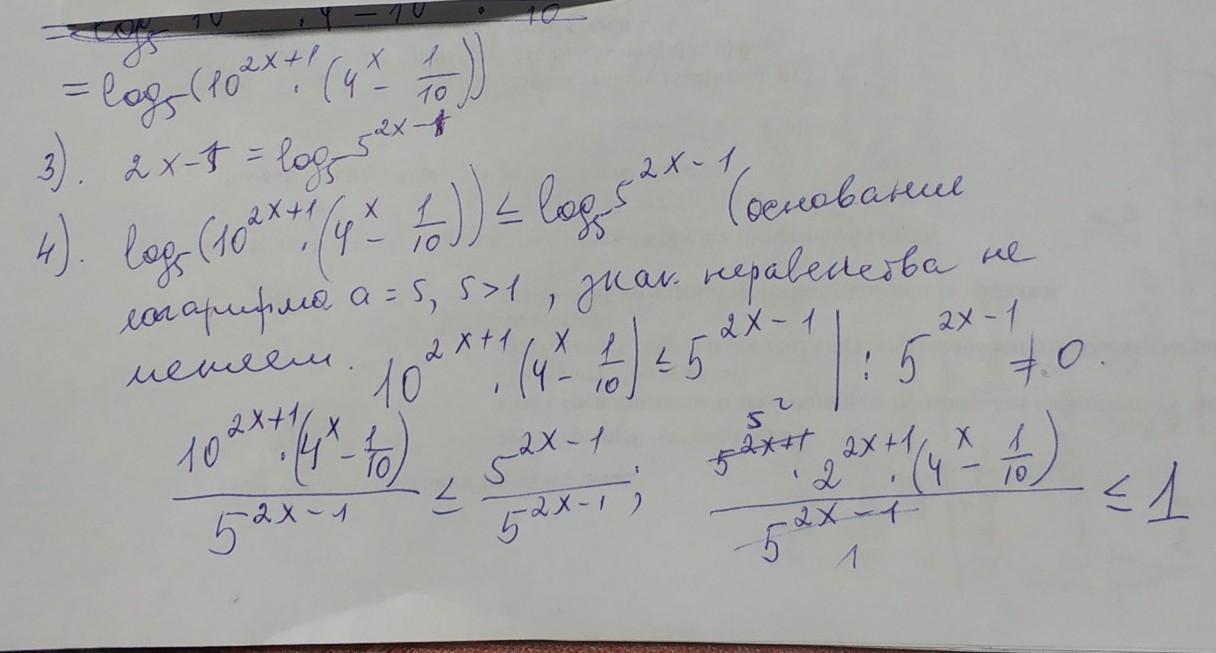 = log₅(10^(2x+1) · (4^x − 1/10))
3). 2x−1 = log₅5^(2x−1)
4). log₅(10^(2x+1) · (4^x − 1/10)) ≤ log₅5^(2x−1) (основание
логарифма a = 5, 5>1, знак неравенства не
меняем. 10^(2x+1) · (4^x − 1/10) ≤ 5^(2x−1) | : 5^(2x−1) ≠ 0.
(10^(2x+1) · (4^x − 1/10))/5^(2x−1) ≤ 5^(2x−1)/5^(2x−1); (5^2 · 2^(2x+1) · (4^x − 1/10))/1 ≤ 1